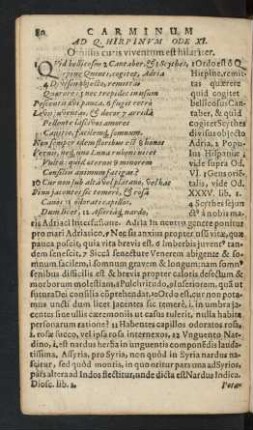 80 CARMINUM
AD Q. HIRPINUM ODE XI.
Omissis curis viventum est hilariter.
1 Quid bellicosus 2 Cantaber, & 3 Scythes,
Hirpine Quinti, cogitet, Adria
4 Divisus objecto, remittas
Quærere: 5 nec trepides in usum
Poscentis ævi pauca. 6 fugit retrò
Levis juventas, & decor, 7 arida
Pellente lascivos amores
Canitie, facilemq́; somnum.
Non semper idem floribus est 8 honos
Vernis, neq́; uno Luna rubens nitet
Vultu: quid æternis 9 minorem
Consiliis animum fatigas?
10 Cur non sub alta vel platano, vel hac
Pinu jacentes sic temerè, & rosâ
Canos 11 odorati capillos,
Dum licet, 12 Assyriâq́; nardo,
1 Ordo est ô Q.
Hirpine, remit-
tas quærere
quid cogitet
bellicosus Can-
taber, & Scythes
divisus objecto
Adria. 2 Popu-
lus Hispaniæ:
vide supra Od.
VI. 3 Gens ori-
talis, vide Od.
XXXV. lib. 1.
4 Scythes sejun-
ctus à nobis ma-
ris Adriaci interfusione. Adria in neutro genere ponitur
pro mari Adriatico. 5 Nec sis anxius propter usum vitæ, quæ
pauca poscit, quia vita brevis est. 6 Imberbis juventus tan-
dem senescit. 7 Siccâ senectute Venerem abigente & so-
mnum facilem, i. somnum gravem & longum: nam somnus
senibus difficilis est & brevis propter caloris defectum &
morborum molestiam. 8 Pulcritudo, pluseriorem. quâ ut
futura Dei consilia cōprehendat. 10 Ordo est, cur non pota-
mus uncti dum licet jacentes sic temerè, i. in umbra ja-
centes sine ullis cæremoniis ut casus tulerit, nulla habita
personarum ratione? 11 Habentes capillos odoratos rosa,
i. rosæ succo, vel ipsa rosa internexos. 12 Unguento Nar-
dino, i. est nardus herba in unguentis componēdis lauda-
tissima. Assyria, pro Syria, non quòd in Syria nardus na-
scitur, sed quòd montis, in quo oritur pars una ad Syrios,
pars altera ad Indos flectitur, unde dicta est Nardus Indica.
Diosc. lib. 1. Pota-